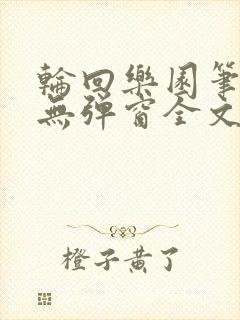 輪回樂園筆
無彈窗全文
橙子黃了